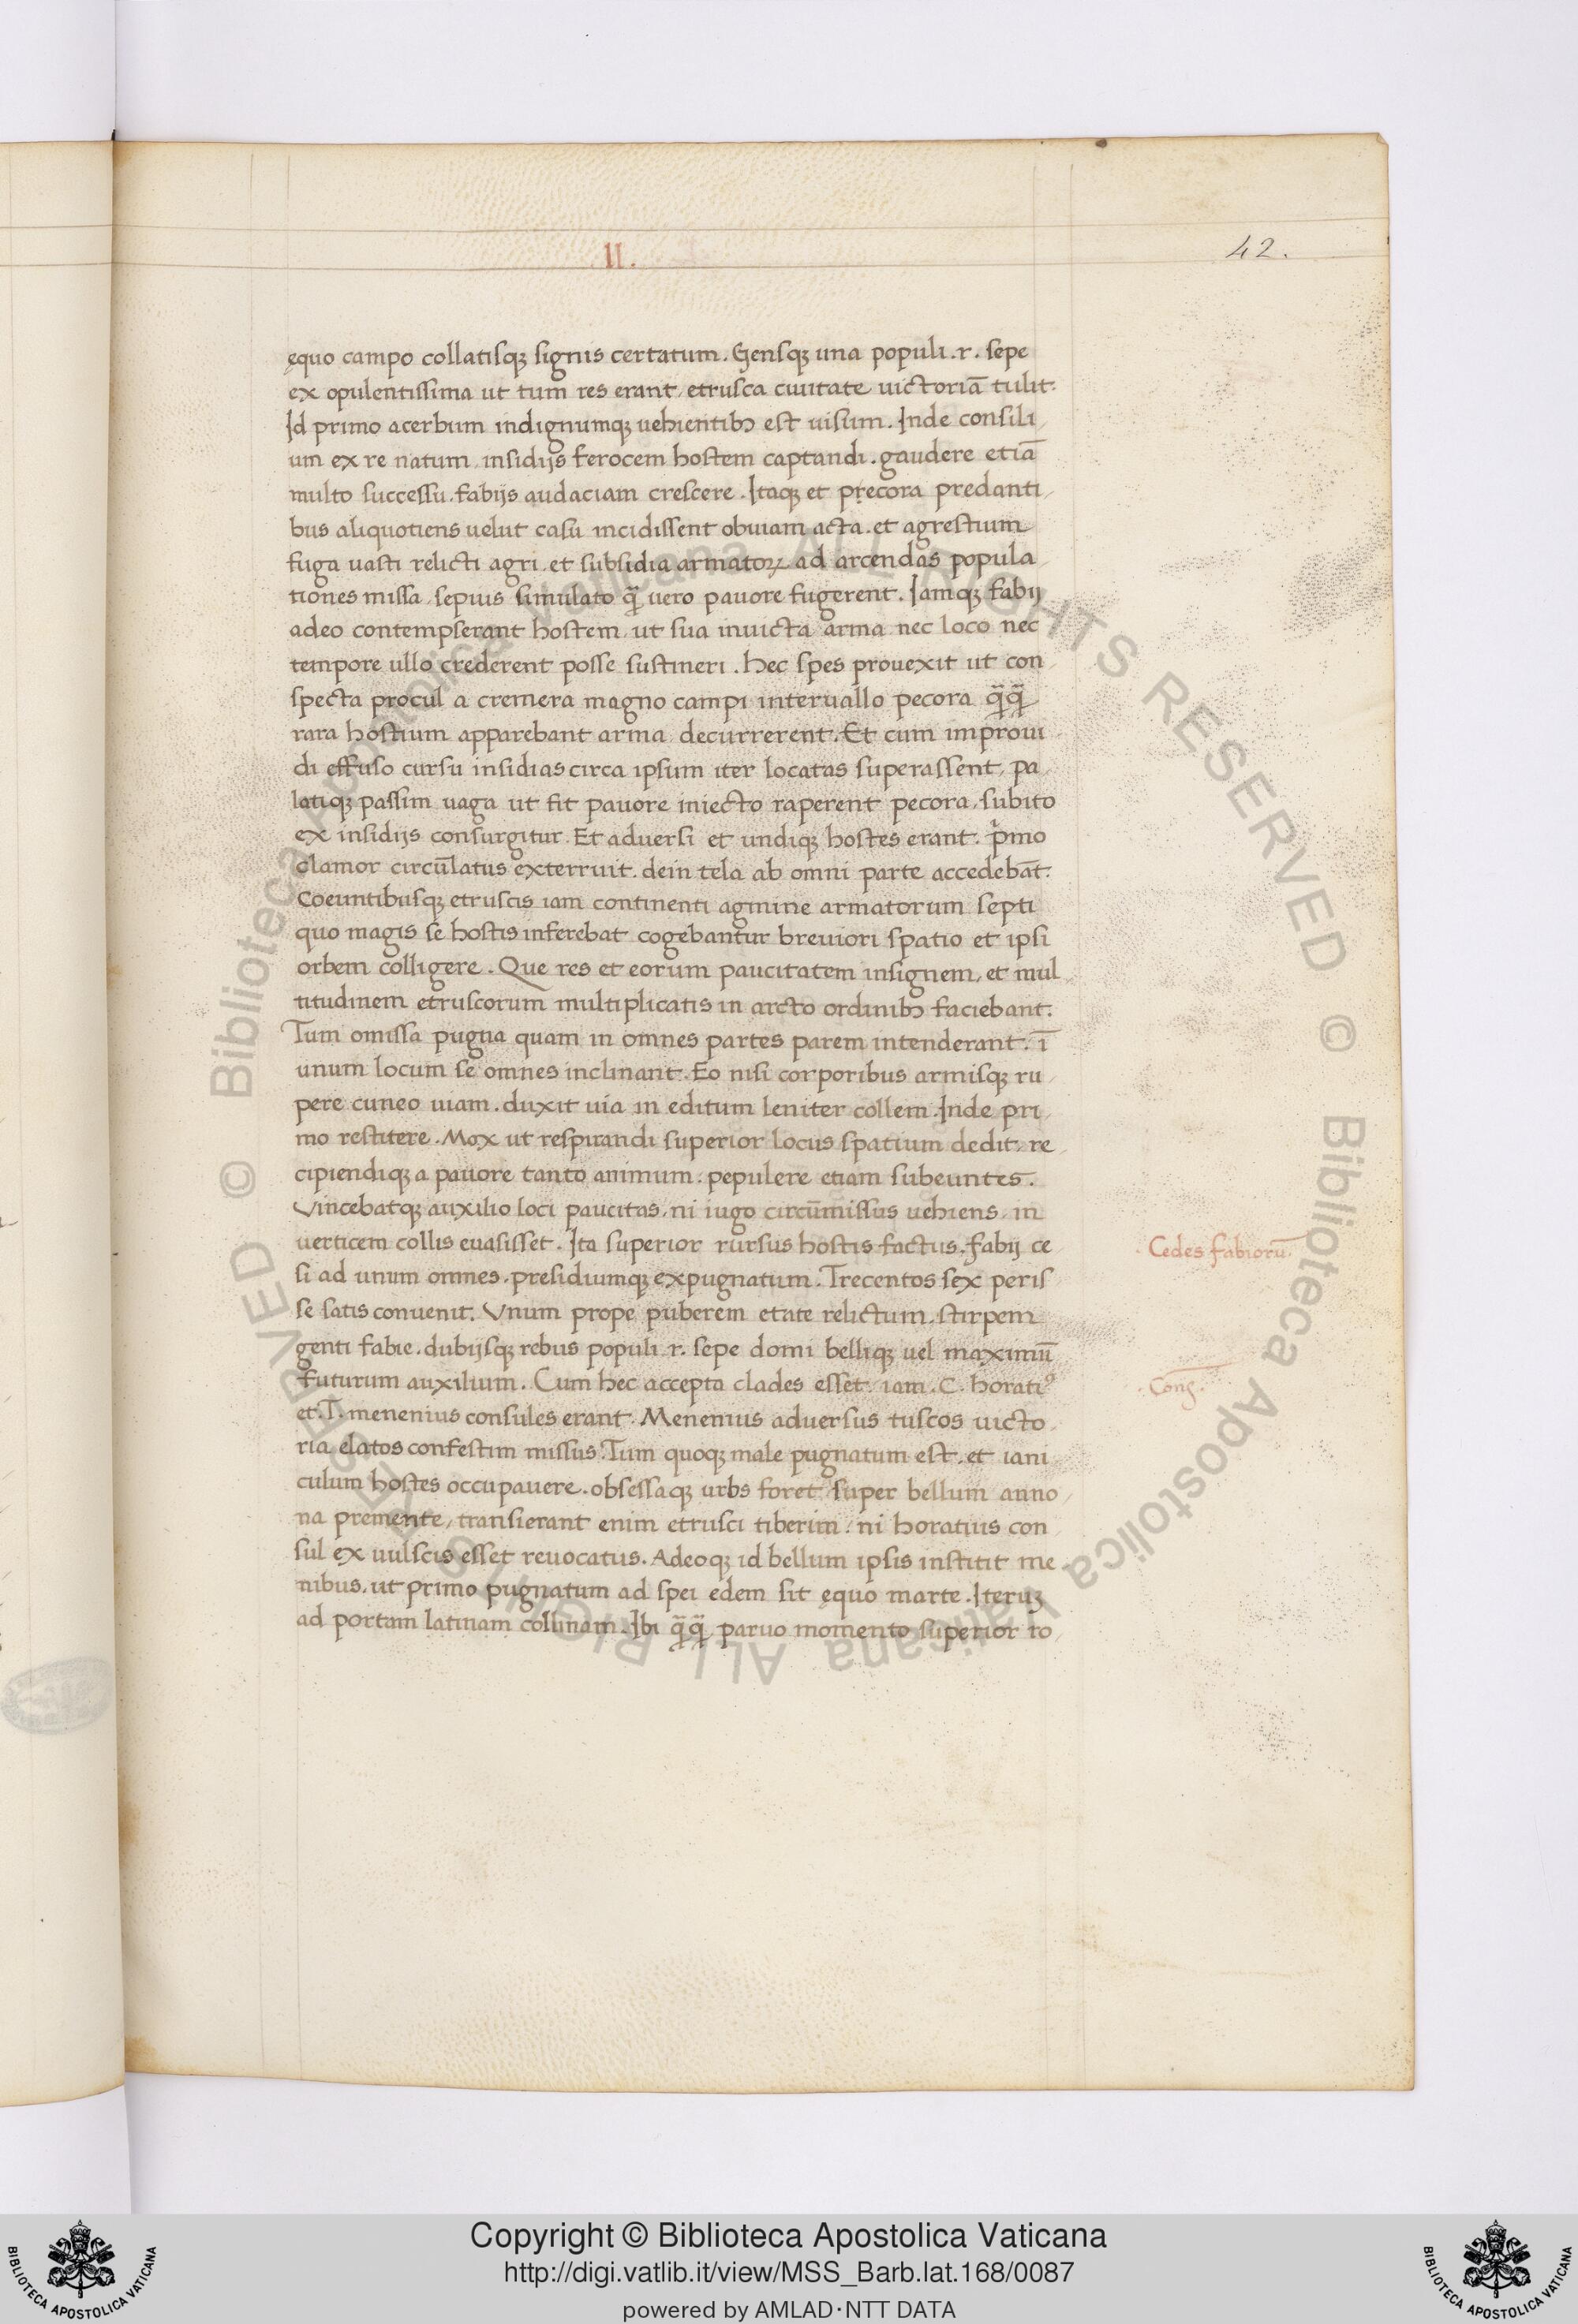 II.
42.
ęquo campo collatisqꝫ signis certatum. Gensqꝫ una populi .r. sepe
ex opulentissima ut tum res erant, etrusca ciuitate uictoriā tulit.
Id primo acerbum indignumqꝫ uehientibꝫ est uisum. Inde consili,
um ex re natum, insidijs ferocem hostem captandi. gaudere etiā
multo successu, fabijs audaciam crescere. Itaqꝫ et pręcora predanti,
bus aliquotiens uelut casu incidissent obuiam acta. et agrestium
fuga uasti relicti agri. et subsidia armatoꝝ ad arcendas popula,
tiones missa, sepius simulato ꝗ̄ uero pauore fugerent. Iamqꝫ fabij
adeo contempserant hostem, ut sua inuicta arma nec loco nec
tempore ullo crederent posse sustineri. Hec spes prouexit ut con,
specta procul a cremera magno campi interuallo pecora ꝗ̄ꝗ̄
rara hostium apparebant arma decurrerent. Et cum improui,
di effuso cursu insidias circa ipsum iter locatas superassent, pa,
latiqꝫ passim uaga ut fit pauore iniecto raperent pecora, subito
ex insidijs consurgitur. Et aduersi et undiqꝫ hostes erant. p̍mo
clamor circūlatus exterruit. dein tela ab omni parte accedebāt.
Coeuntibusqꝫ etruscis iam continenti agmine armatorum septi
quo magis se hostis inferebat cogebantur breuiori spatio et ipsi
orbem colligere. Que res et eorum paucitatem insignem, et mul,
titudinem etruscorum multiplicatis in arcto ordinibꝫ faciebant.
Tum omissa pugna quam in omnes partes parem intenderant. ī
unum locum se omnes inclinant. Eo nisi corporibus armisqꝫ ru,
pere cuneo uiam. duxit uia in editum leniter collem. Inde pri,
mo restitere. Mox ut respirandi superior locus spatium dedit, re
cipiendiqꝫ a pauore tanto animum. pepulere etiam subeuntes.
Vincebatqꝫ auxilio loci paucitas, ni iugo circūmissus uehiens, in
uerticem collis euasisset. Ita superior rursus hostis factus. fabij ce
si ad unum omnes, presidiumqꝫ expugnatum. Trecentos sex peris
se satis conuenit. Vnum prope puberem etate relictum, stirpem
genti fabie. dubijsqꝫ rebus populi .r. sepe domi belliqꝫ uel maximū
futurum auxilium. Cum hec accepta clades esset, iam .C. horatiꝰ
et .T. menenius consules erant. Menenius aduersus tuscos uicto,
ria elatos confestim missus. Tum quoqꝫ male pugnatum est. et iani
culum hostes occupauere. obsessaqꝫ urbs foret super bellum anno,
na premente, transierant enim etrusci tiberim. ni horatius con
sul ex uulscis esset reuocatus. Adeoqꝫ id bellum ipsis institit me
nibus, ut primo pugnatum ad spei edem sit ęquo marte. Iteruꝫ
ad portam latinam collinam. Ibi ꝗ̄ꝗ̄ paruo momento superior ro,
Cedes fabiorū
Cons.
© Biblioteca Apostolica Vaticana ALL RIGHTS RESERVED © Biblioteca Apostolica Vaticana ALL RIGHTS RESERVED
Copyright © Biblioteca Apostolica Vaticana
http://digi.vatlib.it/view/MSS_Barb.lat.168/0087
powered by AMLAD·NTT DATA
BIBLIOTECA APOSTOLICA VATICANA
BIBLIOTECA APOSTOLICA VATICANA